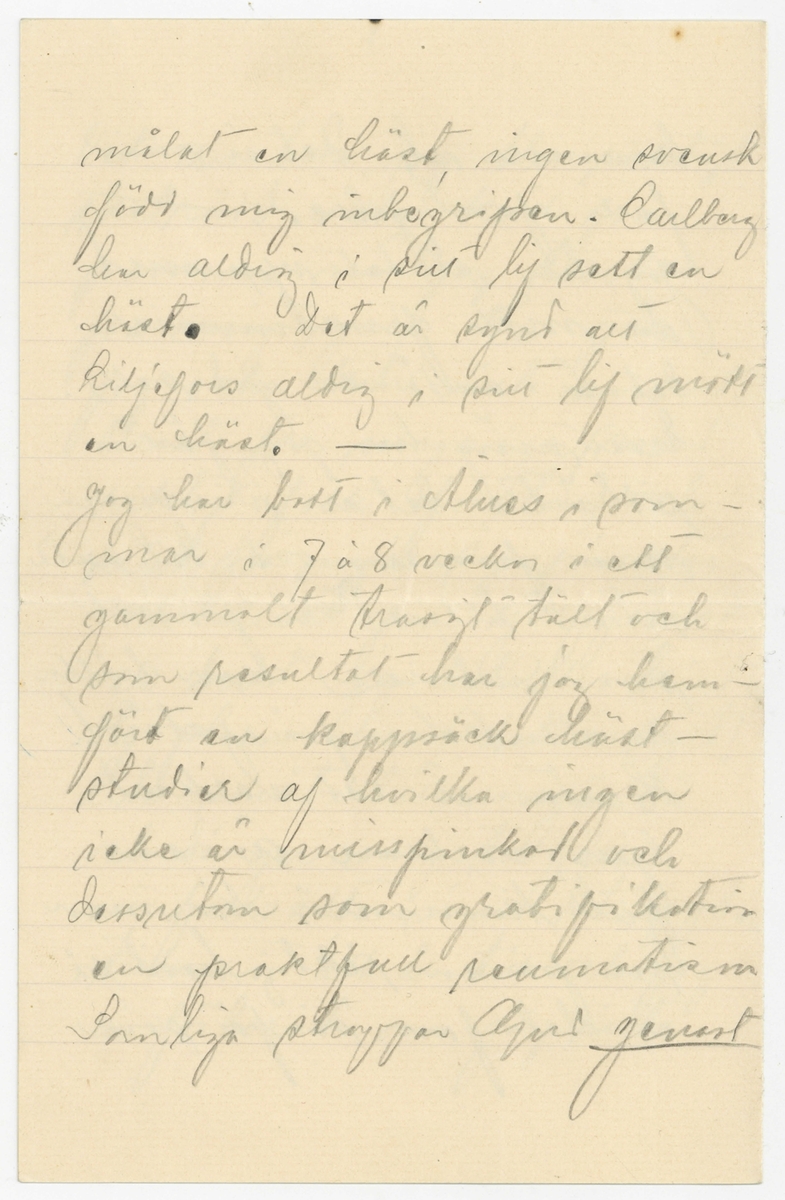 målat en häst, ingen svensk
född mig inbegripen. Carlberg
har aldrig i sitt lif sett en
häst. Det är synd att
Liljefors aldrig i sitt lif mött
en häst. —
Jag har bott i i som-
mar i 7 à 8 veckor i ett
gammalt trasigt tält och
som resultat har jag hem-
fört en kappsäck häst-
studier af hvilka ingen
icke är misspinkad och
dessutom som gratifikation
en praktfull reumatism
Somliga stroppar genast